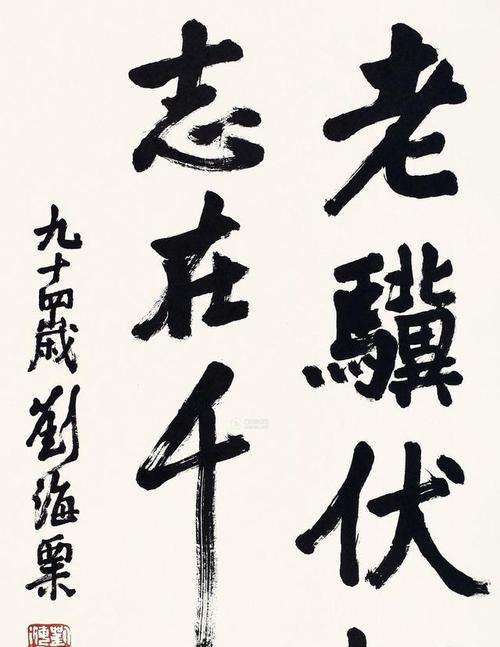 老驥伏
志在千
九十四歲 劉海粟